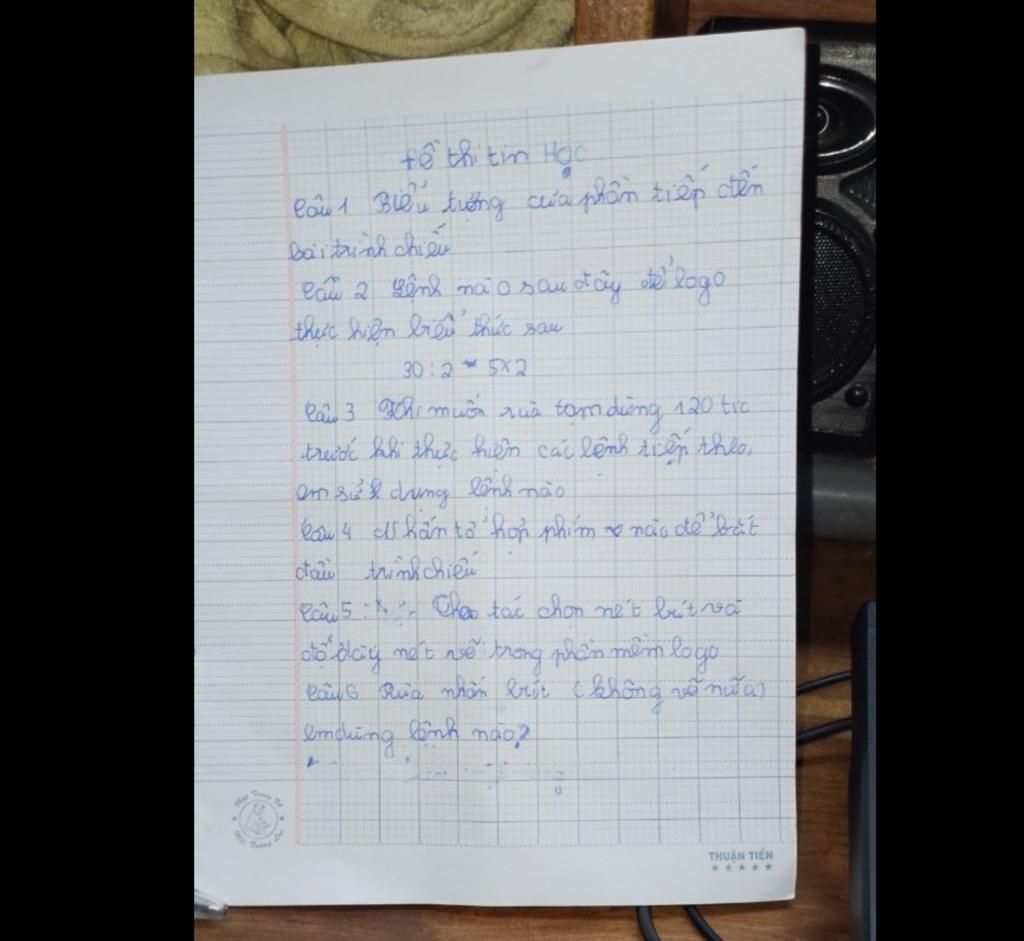 Đề thi tin Học
Câu 1 Biểu tượng của phần tiếp đến
bài trình chiếu
Câu 2 Lệnh nào sau đây để logo
thực hiện biểu thức sau
30 : 2 - 5 x 2
Câu 3 Khi muốn rùa tạm dừng 120 tíc
trước khi thực hiện các lệnh tiếp theo,
em sử dụng lệnh nào
Câu 4 Nhấn tổ hợp phím nào để bắt
đầu trình chiếu
Câu 5 : Thao tác chọn nét bút và
độ dày nét vẽ trong phần mềm logo
Câu 6 Rùa nhấn bút (không vẽ nữa)
em dùng lệnh nào?
Một Trang Vở
Một Tương Lai
THUẬN TIẾN